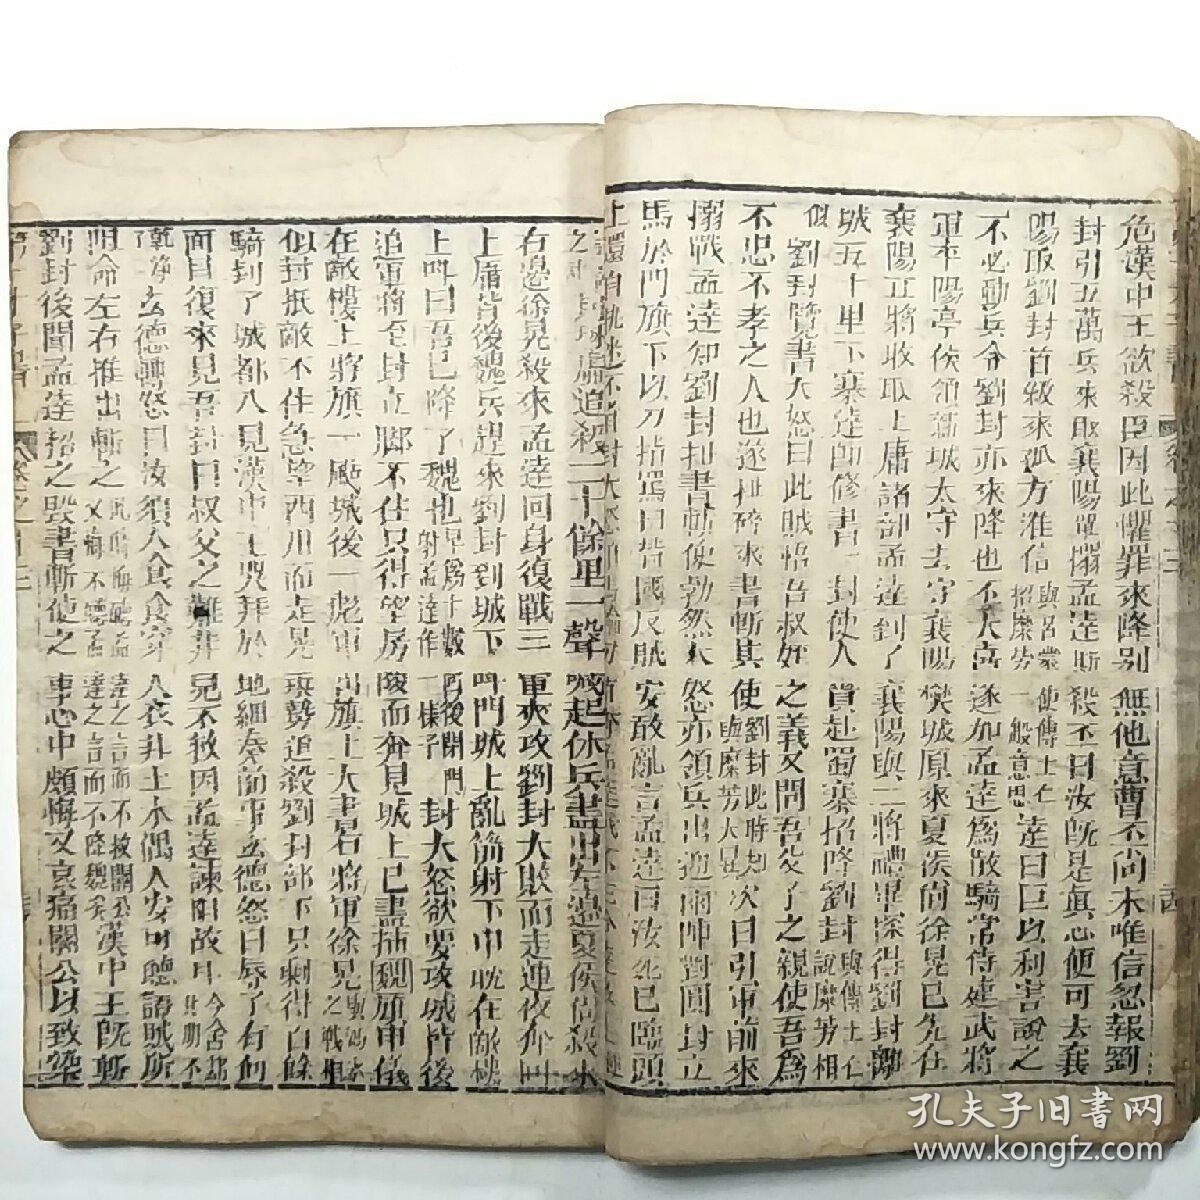 危漢中王欲殺臣因此懼罪來降别無他意曹丕尚未唯信忽報劉
封引五萬兵來取襄陽單搦孟達厮殺丕曰汝旣是真心便可去襄
陽取劉封首級來孤方准信達曰臣以利害說之
不必動兵令劉封亦來降也丕大喜遂加孟達爲散騎常侍建武將
軍平陽亭侯領新城太守去守襄陽樊城原來夏侯尚徐晃已先在
襄陽正將收取上庸諸部孟達到了襄陽與二將禮畢探得劉封離
城五十里下寨達卽修書一封使人賫赴蜀寨招降劉封
劉封覽書大怒曰此賊悞吾叔姪之義又間吾父子之親使吾爲
不忠不孝之人也遂扯碎來書斬其使次日引軍前來
搦戰孟達知劉封扯書斬使勃然大怒亦領兵出迎兩陣對圓封立
馬於門旗下以刀指罵曰背國反賊安敢亂言孟達曰汝死已臨頭
上還自執迷不省封大怒
追殺二十餘里一聲喊起伏兵盡出左邊夏侯尚殺來
右邊徐晃殺來孟達回身復戰三軍夾攻劉封大敗而走連夜奔回
上庸背後魏兵趕來劉封到城下叫門城上亂箭射下申耽在敵樓
上叫曰吾已降了魏也封大怒欲要攻城背後
追軍將至封立脚不住只得望房陵而奔見城上已盡插魏旗申儀
在敵樓上將旗一颭城後一彪軍出旗上大書右將軍徐晃
封抵敵不住急望西川而走晃乘勢追殺劉封部下只剩得百餘
騎到了成都入見漢中王哭拜於地細奏前事玄德怒曰辱子有何
面目復來見吾封曰叔父之難非兒不救因孟達諫阻故耳
玄德轉怒曰汝須人食食穿人衣非土木偶人安可聽讒賊所
阻命左右推出斬之漢中王旣斬
劉封後聞孟達招之毀書斬使之事心中頗悔又哀痛關公以致染
孔夫子旧書网
www.kongfz.com